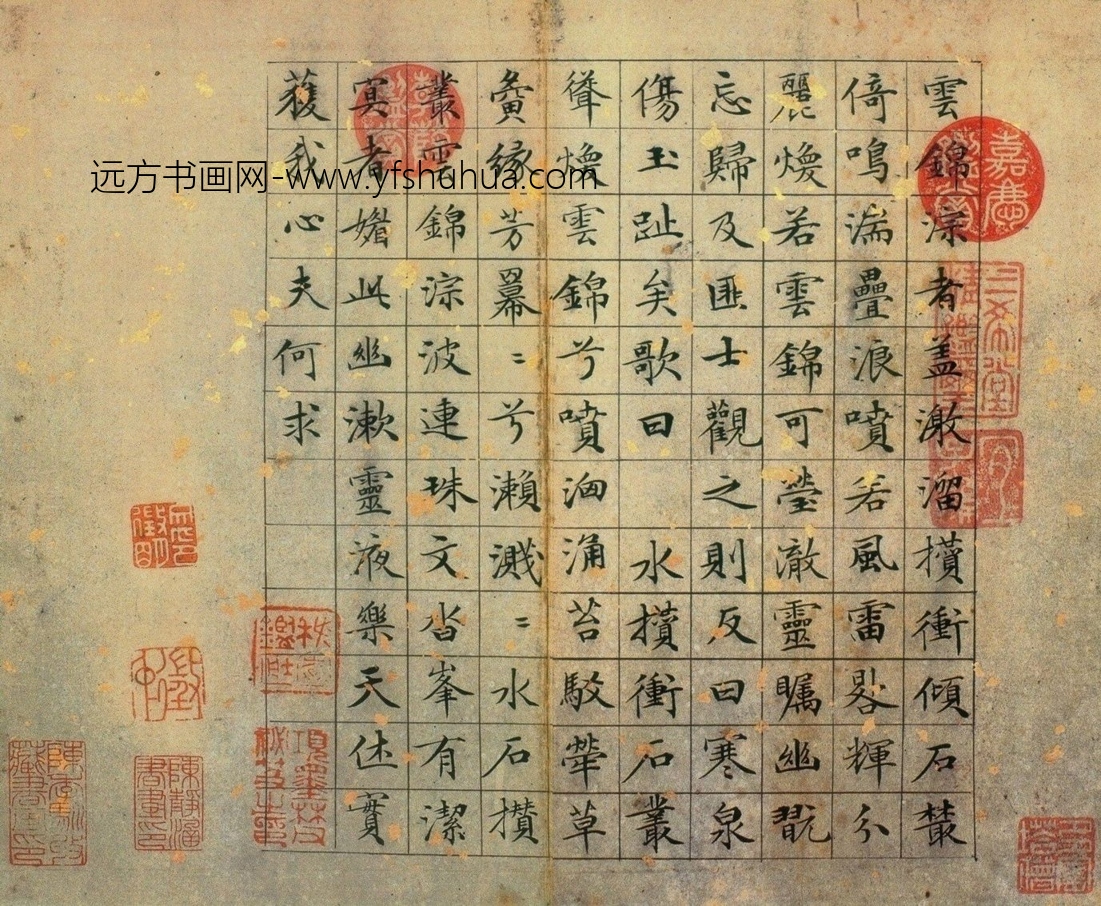 雲錦淙者盖激溜攢衝傾石叢
倚鳴湍疊浪噴若風雷晷輝分
麗煥若雲錦可瑩澈靈矚幽翫
忘歸及匪士觀之則反曰寒泉
傷玉趾矣歌曰 水攢衝石叢
聳煥雲錦兮噴洶涌苔駮犖草
夤緣芳羃〻兮瀨濺〻水石攢
叢雲錦淙波連珠文沓峯有潔
冥者媚此幽漱靈液樂天休實
蒦我心夫何求
远方书画网-www.yfshuhua.com